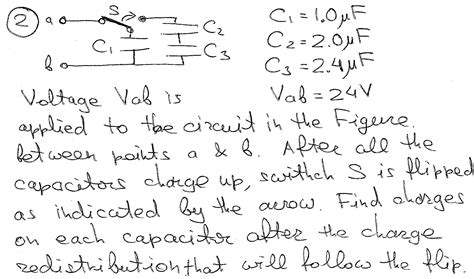 2 a S C₂ C₁ = 1.0 μF
C₁ C₂ = 2.0 μF
b C₃ C₃ = 2.4 μF
Voltage Vab is Vab = 24V
applied to the circuit in the Figure
between points a & b. After all the
capacitors charge up, switch S is flipped
as indicated by the arrow. Find charges
on each capacitor after the charge
redistribution that will follow the flip.